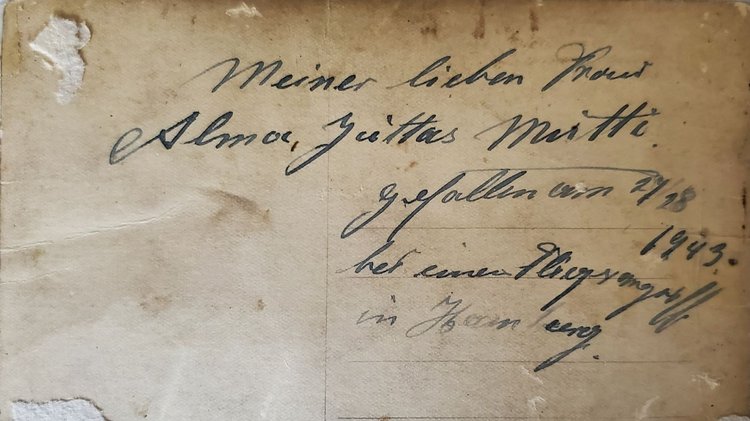 Meiner lieben Frau
Alma, Juttas Mutti.
gefallen am 27/28
1943.
bei einen Fliegerangriff
in Hamburg.